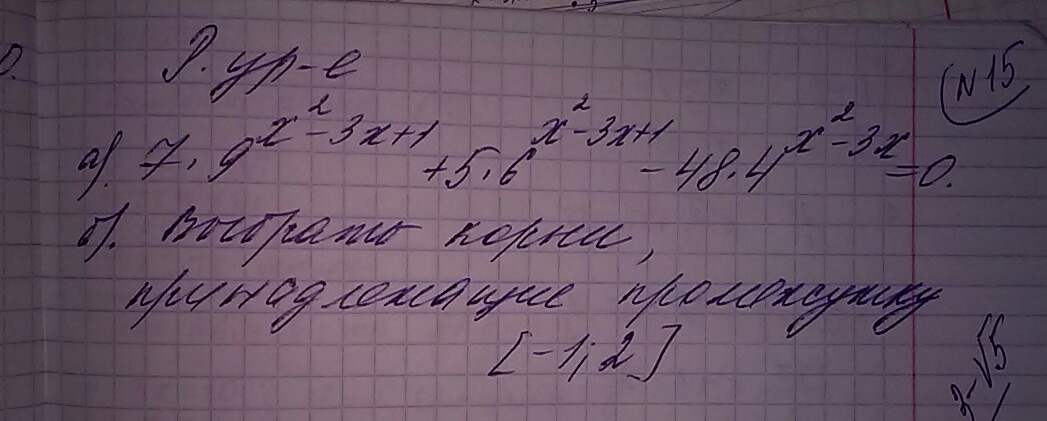 Р. ур-е
№15
а). 7·9^{x²-3x+1} +5·6^{x²-3x+1} -48·4^{x²-3x}=0.
б). Выбрать корни,
принадлежащие промежутку
[-1; 2]